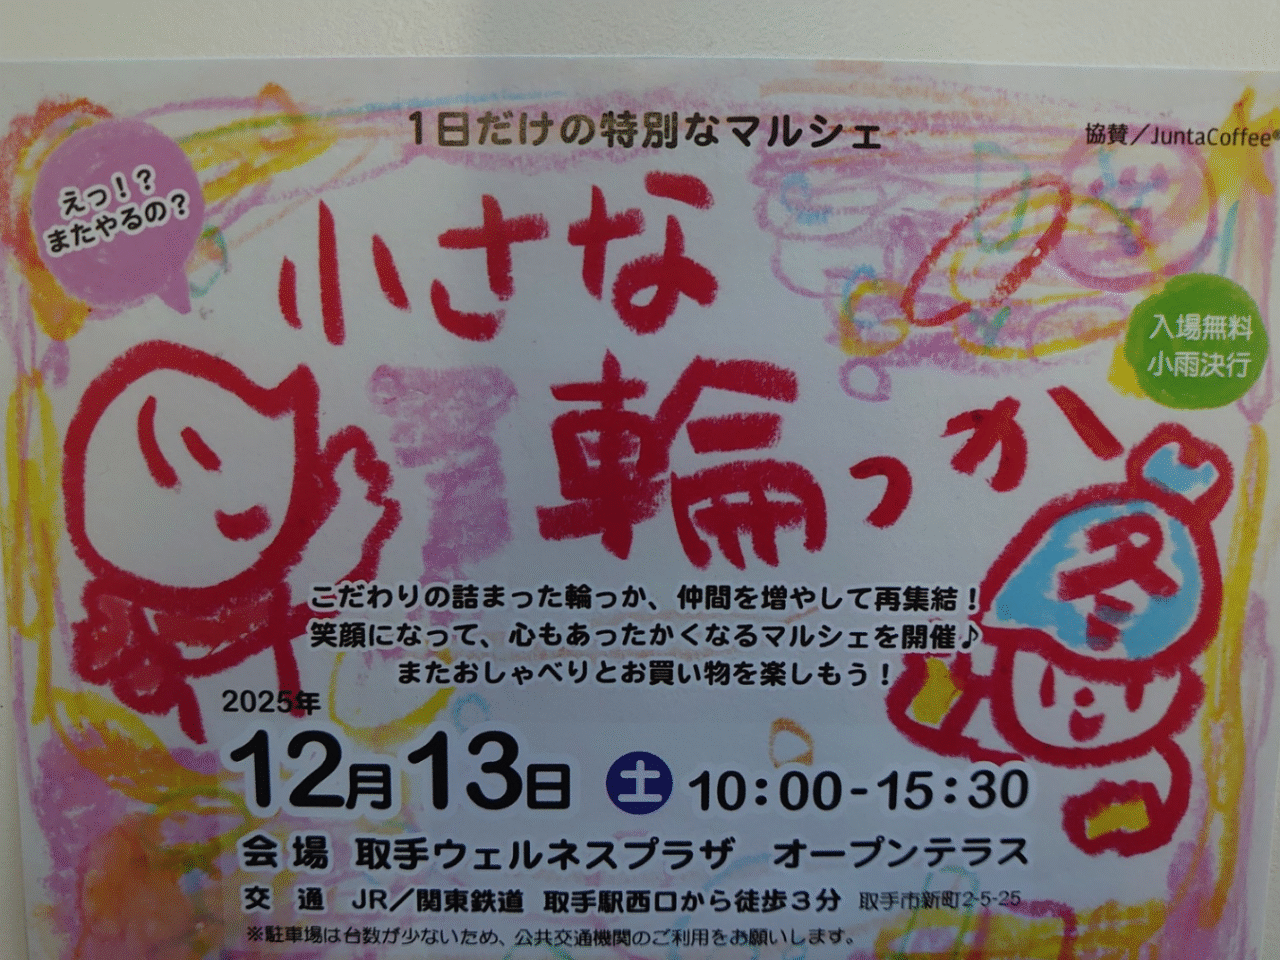 1日だけの特別なマルシェ
協賛／JuntaCoffee
えっ！？
またやるの？
小さな
輪っか
入場無料
小雨決行
冬
こだわりの詰まった輪っか、仲間を増やして再集結！
笑顔になって、心もあったかくなるマルシェを開催♪
またおしゃべりとお買い物を楽しもう！
2025年
12月13日 土 10:00-15:30
会場 取手ウェルネスプラザ オープンテラス
交通 JR／関東鉄道 取手駅西口から徒歩3分 取手市新町2-5-25
※駐車場は台数が少ないため、公共交通機関のご利用をお願いします。